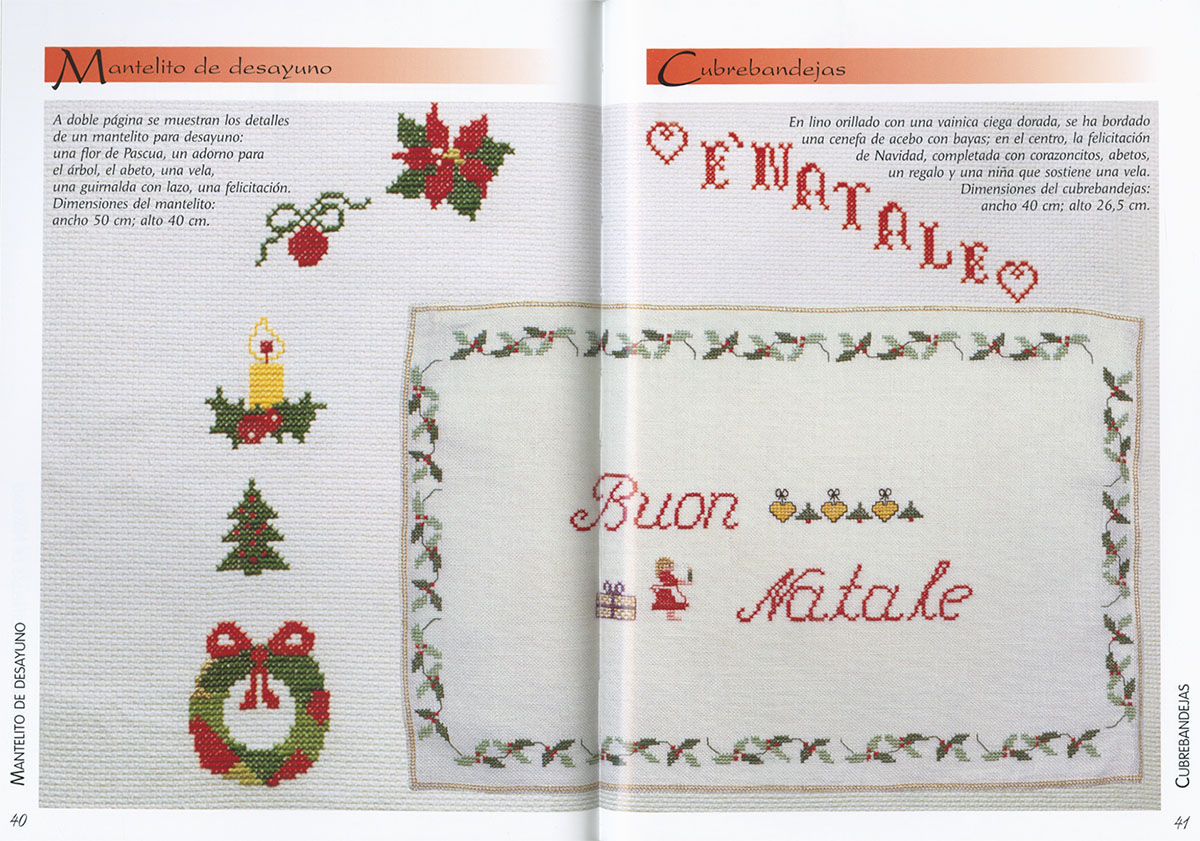 Mantelito de desayuno
A doble página se muestran los detalles
de un mantelito para desayuno:
una flor de Pascua, un adorno para
el árbol, el abeto, una vela,
una guirnalda con lazo, una felicitación.
Dimensiones del mantelito:
ancho 50 cm; alto 40 cm.
MANTELITO DE DESAYUNO
40
Cubrebandejas
En lino orillado con una vainica ciega dorada, se ha bordado
una cenefa de acebo con bayas; en el centro, la felicitación
de Navidad, completada con corazoncitos, abetos,
un regalo y una niña que sostiene una vela.
Dimensiones del cubrebandejas:
ancho 40 cm; alto 26,5 cm.
E'NATALE
Buon
Natale
CUBREBANDEJAS
41